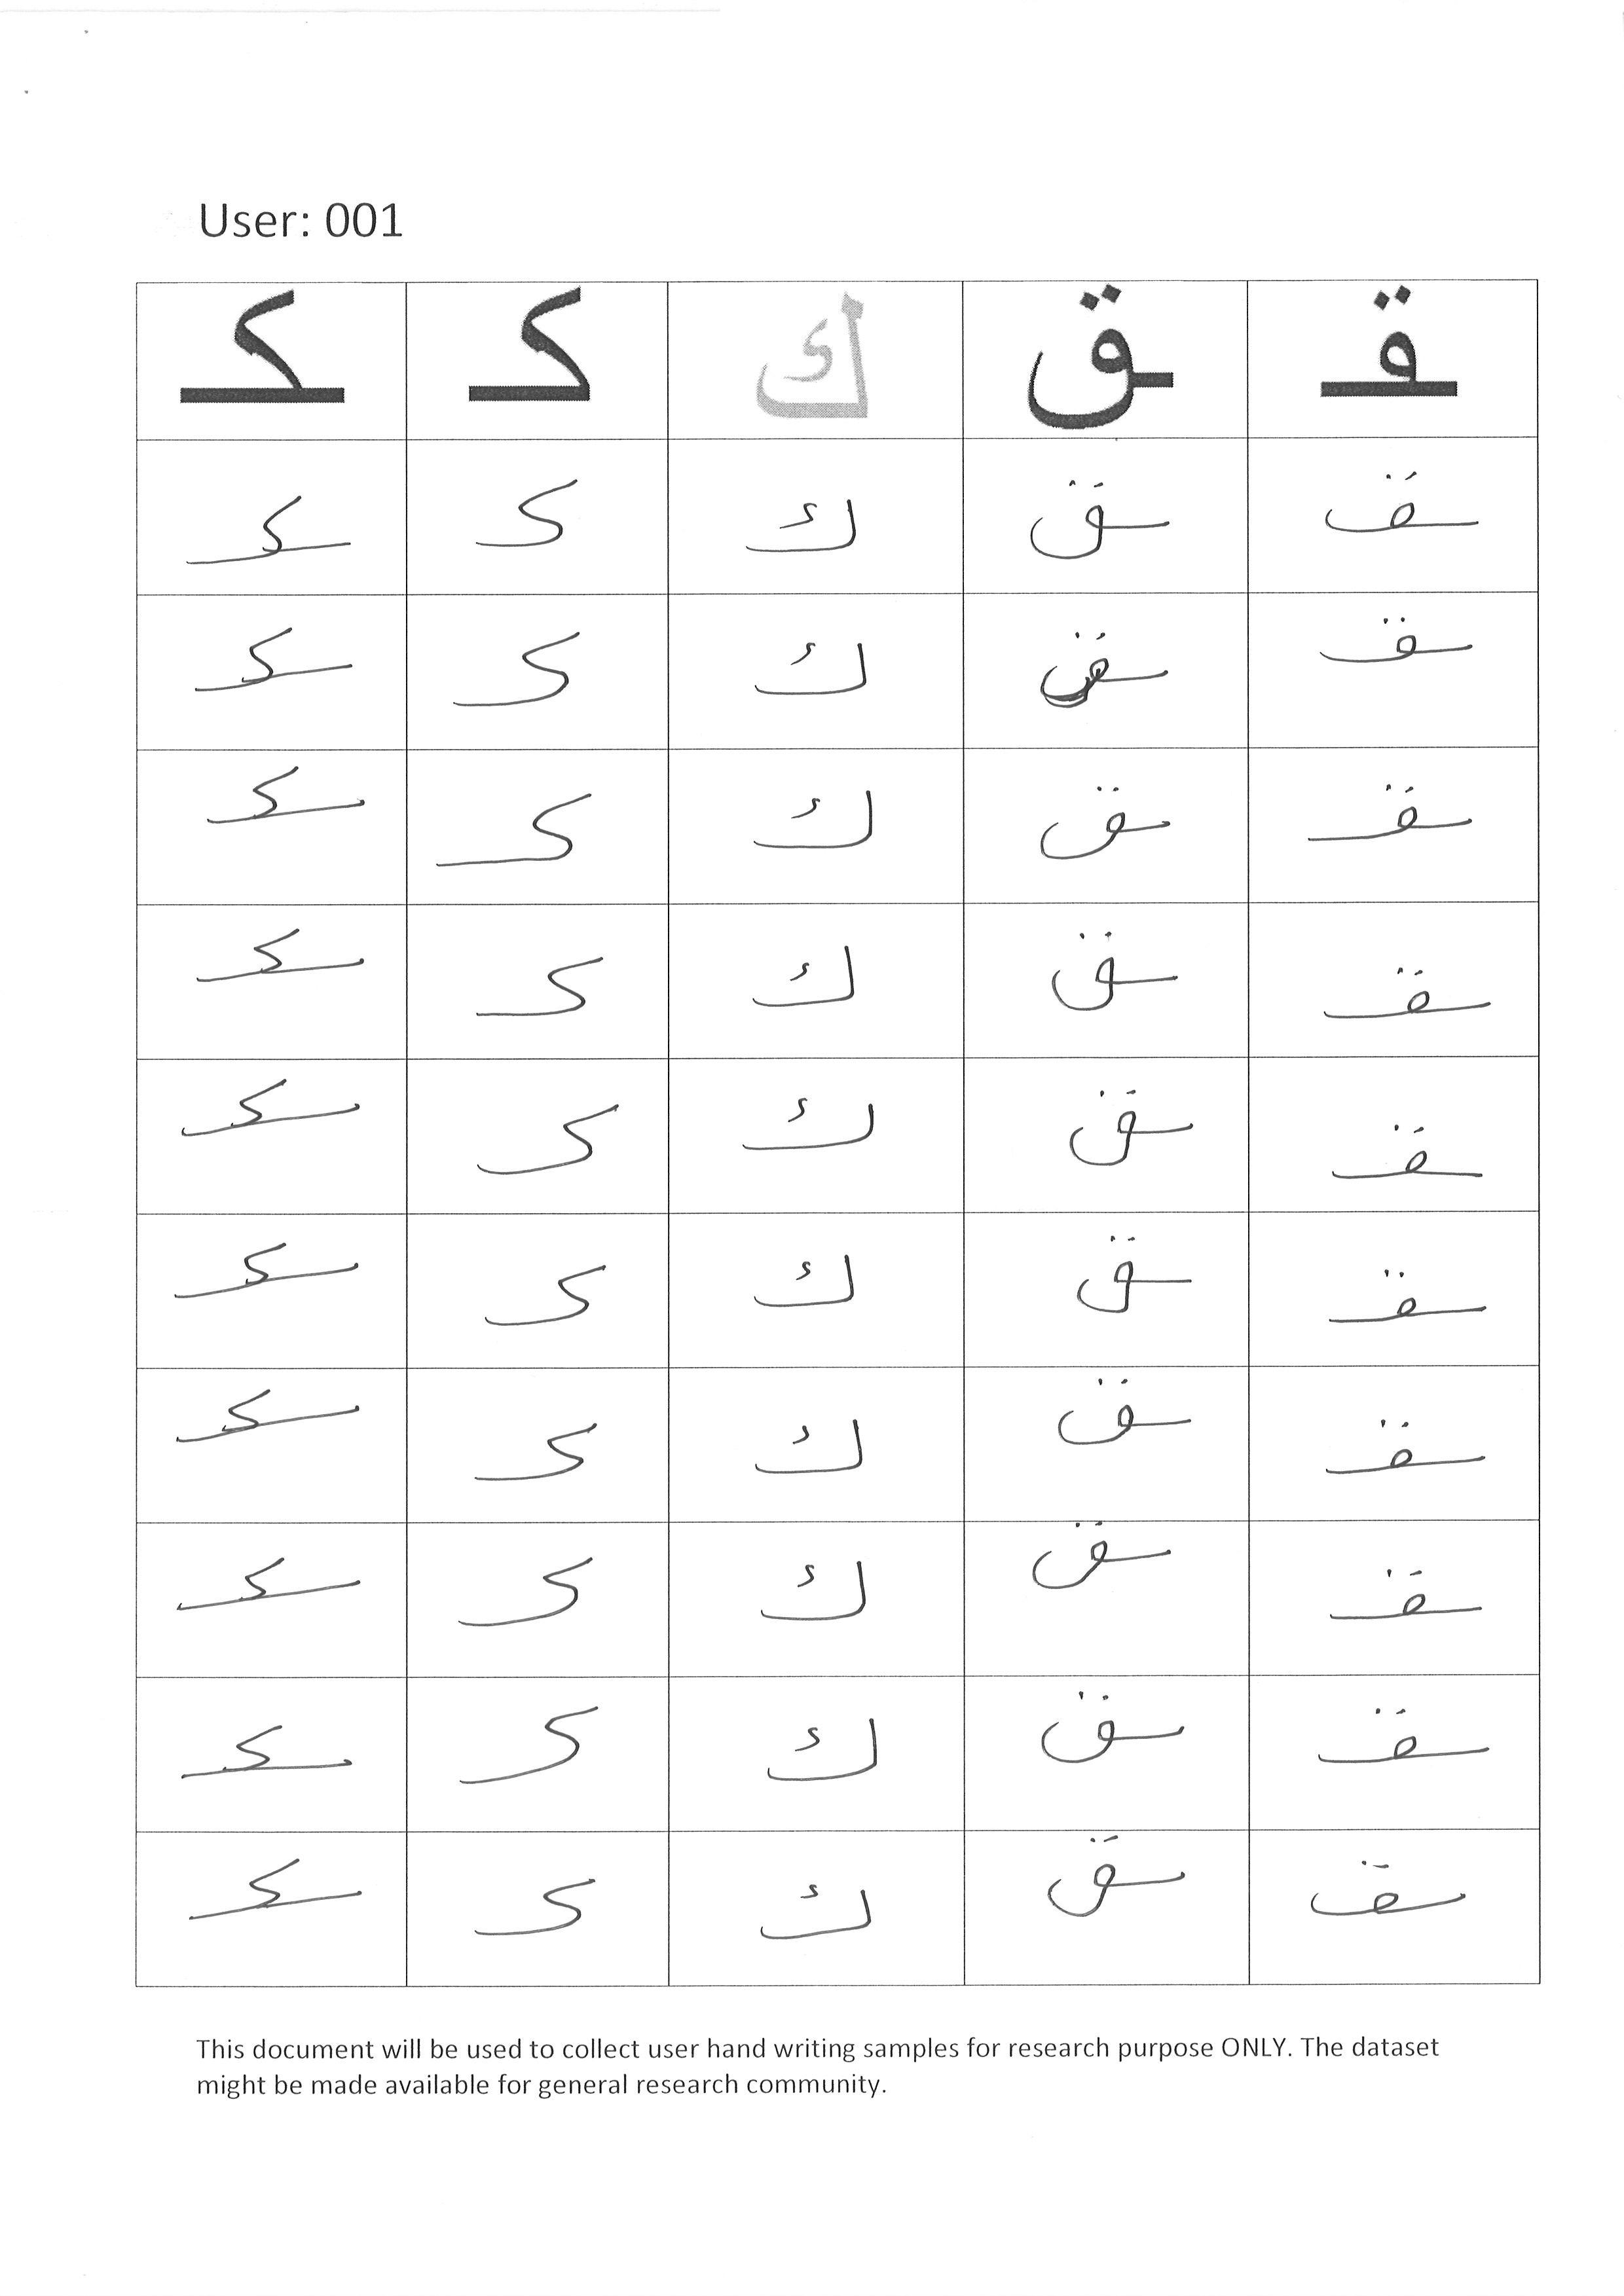 User: 001
ـقـ ـق ك كـ ـكـ
ـقـ ـق ك كـ ـكـ
ـقـ ـق ك كـ ـكـ
ـقـ ـق ك كـ ـكـ
ـقـ ـق ك كـ ـكـ
ـقـ ـق ك كـ ـكـ
ـقـ ـق ك كـ ـكـ
ـقـ ـق ك كـ ـكـ
ـقـ ـق ك كـ ـكـ
ـقـ ـق ك كـ ـكـ
ـقـ ـق ك كـ ـكـ
This document will be used to collect user hand writing samples for research purpose ONLY. The dataset
might be made available for general research community.